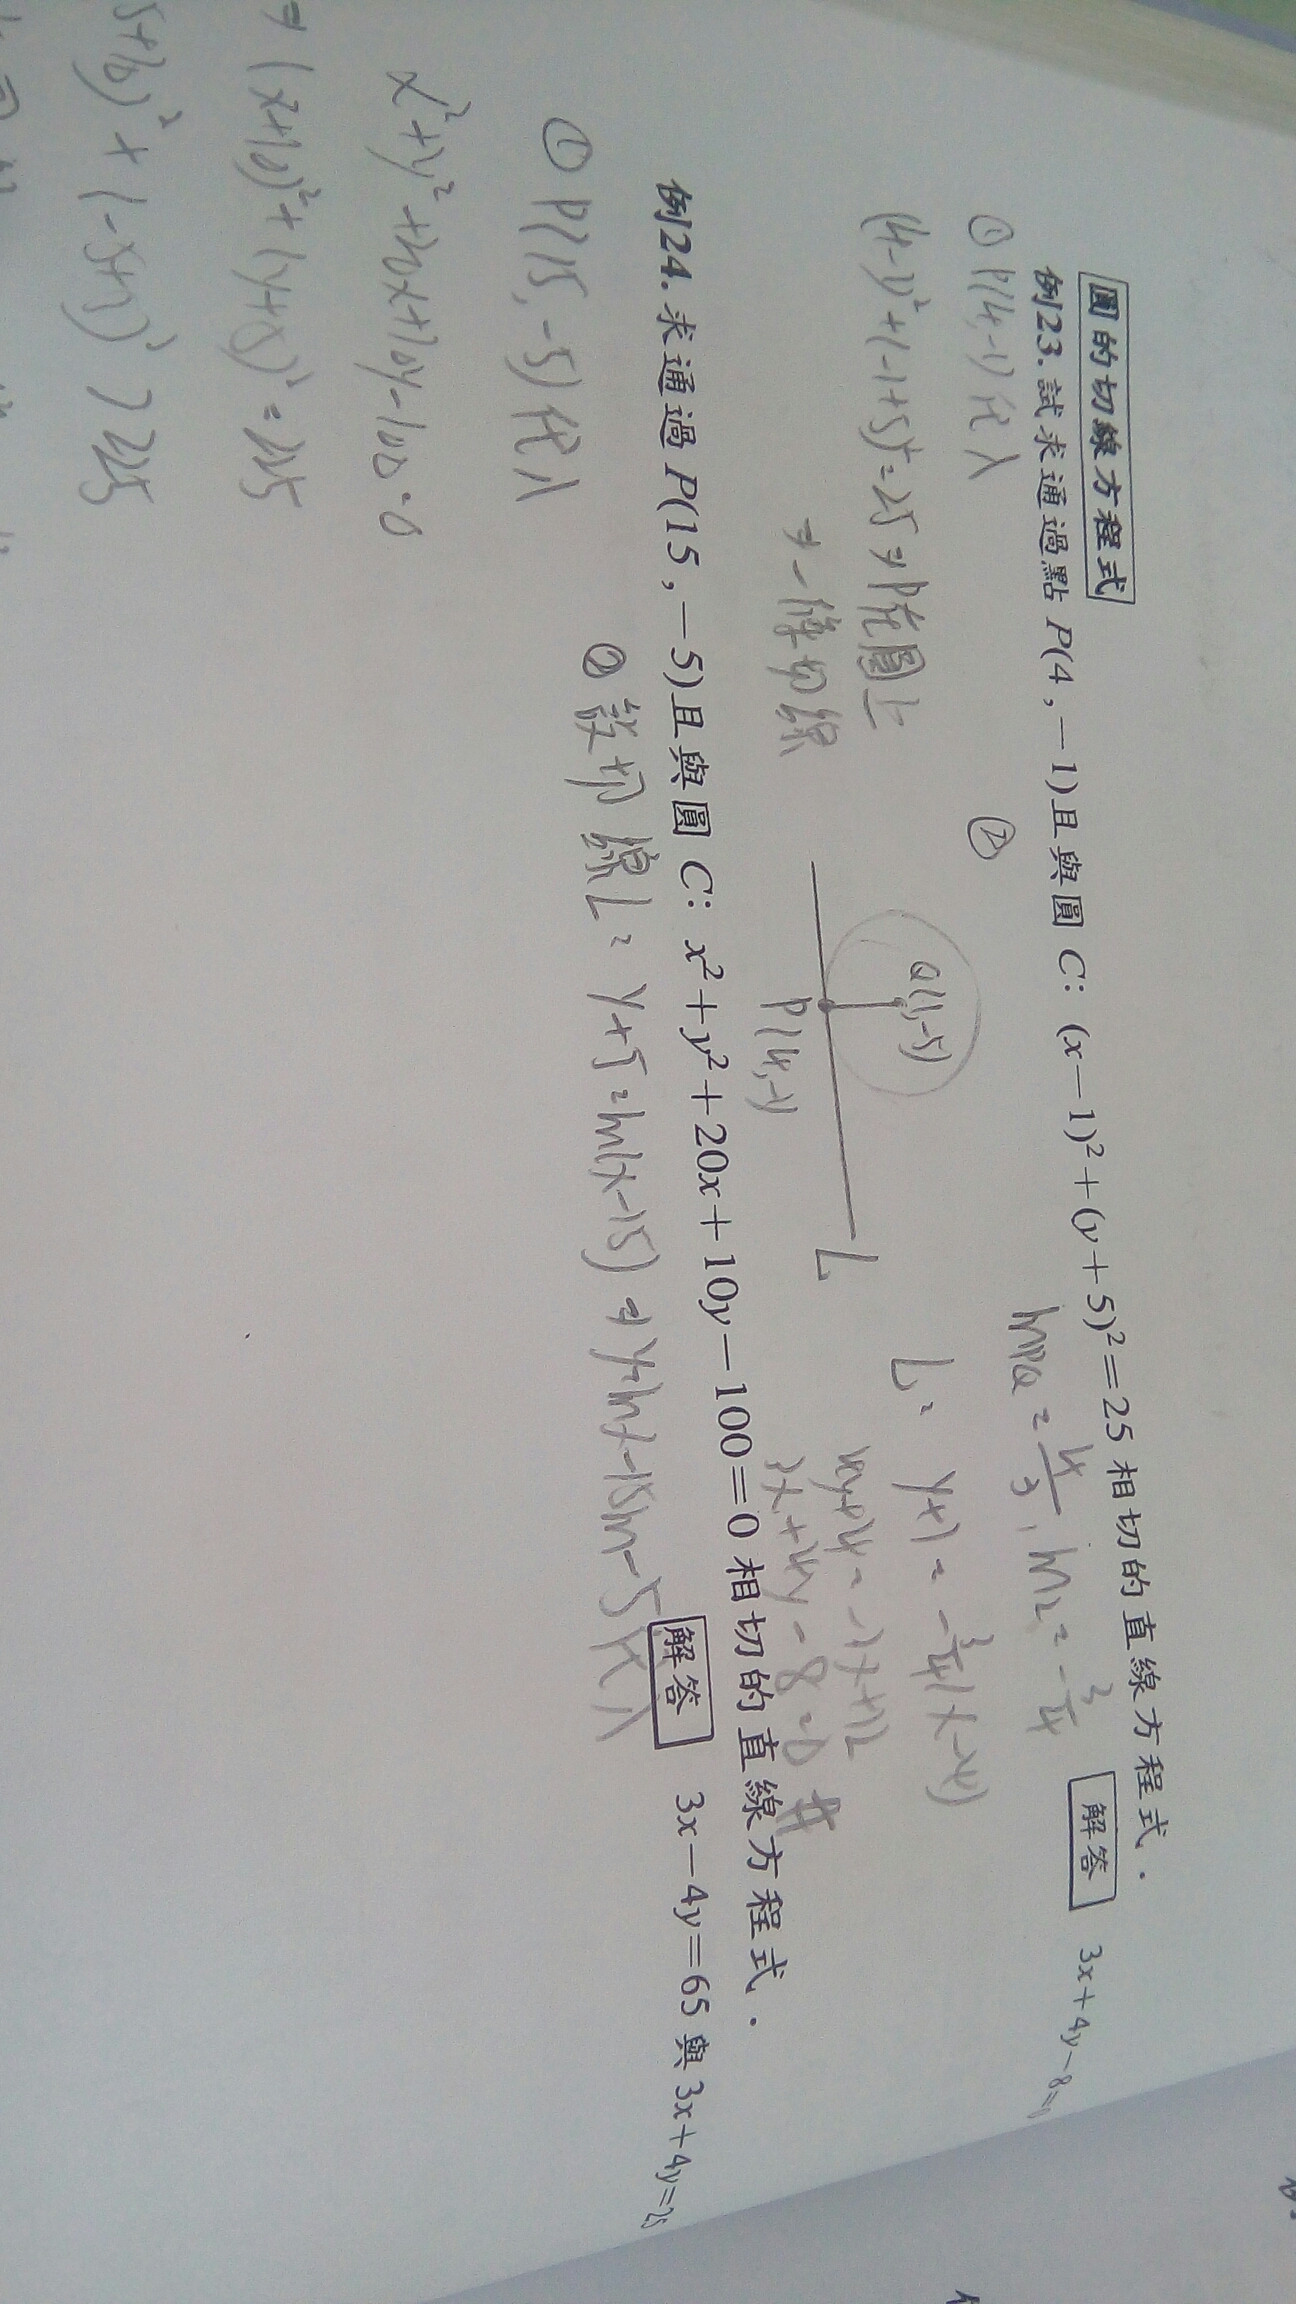 圓的切線方程式
例23. 試求通過點 P(4,−1)且與圓 C: (x−1)²+(y+5)²=25 相切的直線方程式.
解答 3x+4y−8=0
① P(4,-1)代入
(4-1)²+(-1+5)²=25 ⇒ P在圓上
⇒ 一條切線
②
Q(1,-5)
P(4,-1)
L
mPQ = 4/3, mL = -3/4
L: y+1 = -3/4(x-4)
4y+4 = -3x+12
3x+4y-8=0 #
例24. 求通過 P(15,−5)且與圓 C: x²+y²+20x+10y−100=0 相切的直線方程式.
解答 3x−4y=65 與 3x+4y=25
① P(15,-5)代入
x²+y²+20x+10y-100=0
⇒ (x+10)²+(y+5)²=225
5+10)²+(-5+5)²>225
② 設切線L: y+5=m(x-15) ⇒ y=mx-15m-5代入